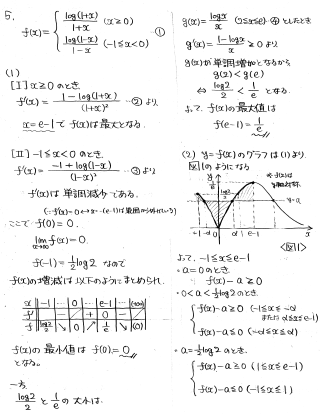 5.
f(x) = { log(1+x)/(1+x) (x≥0)
log(1-x)/(1-x) (-1≤x<0) ①
(1)
[I] x≥0 のとき
f'(x) = (1-log(1+x))/(1+x)² …② より
x=e-1 で f(x)は最大となる.
[II] -1≤x<0 のとき
f'(x) = (-1+log(1-x))/(1-x)² …③ より
f(x)は 単調減少 である.
ここで f(0)=0.
lim f(x)=0.
x→∞
f(-1)=½log2 なので
f(x)の増減は 以下のようにまとめられ.
x | -1 | … | 0 | … | e-1 | … | (+∞)
f' | | - | | + | 0 | - |
f | log2/2 | ↘ | 0 | ↗ | 1/e | ↘ | (0)
f(x)の 最小値は f(0)=0
となる。
一方
log2/2 と 1/e の 大小は.
g(x)= logx/x (2≤x≤e)…④ としたとき
g'(x)= (1-logx)/x² ≥0 より
g(x)が 単調増加となるから
g(2)<g(e)
⇔ log2/2 < 1/e となる.
よって. f(x)の最大値は
f(e-1)=1/e
(2) y=f(x)のグラフは(1)より
図1のようになる
y
1/e
log2/2
y=a
-1 -α 0 α 1 e-1 x
<図1>
よって. -1≤x≤e-1
・a=0のとき
f(x)-a≥0
・0<a<½log2のとき.
{ f(x)-a≥0 (-1≤x≤-α または α≤x≤e-1)
f(x)-a≤0 (-α≤x≤α)
・a=½log2のとき.
{ f(x)-a≥0 (1≤x≤e-1)
f(x)-a≤0 (-1≤x≤1)